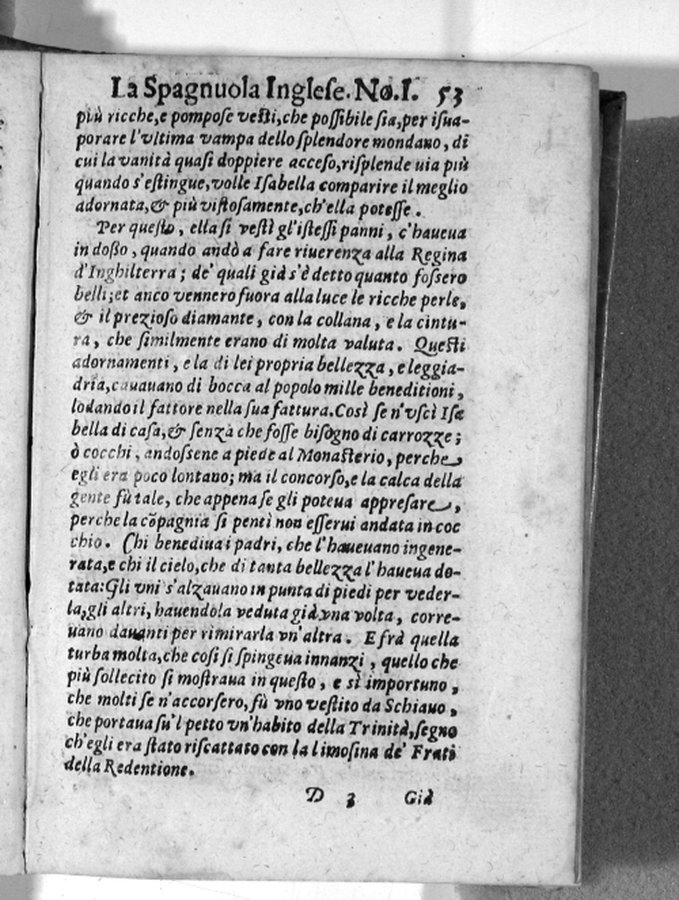 La Spagnuola Inglese. No. I. 53
più ricche, e pompose vesti, che possibile sia, per isua-
porare l'vltima vampa dello splendore mondano, di
cui la vanità quasi doppiere acceso, risplende uia più
quando s'estingue, volle Isabella comparire il meglio
adornata, & più vistosamente, ch'ella potesse.
Per questo, ella si vestì gl'istessi panni, c'haueua
in dosso, quando andò a fare riuerenza alla Regina
d'Inghilterra; de' quali già s'è detto quanto fossero
belli; et anco vennero fuora alla luce le ricche perle,
& il prezioso diamante, con la collana, e la cintu-
ra, che similmente erano di molta valuta. Questi
adornamenti, e la di lei propria bellezza, e leggia-
dria, cauauano di bocca al popolo mille beneditioni,
lodando il fattore nella sua fattura. Così se n'vscì Isa
bella di casa, & senza che fosse bisogno di carrozze;
ò cocchi, andossene a piede al Monasterio, perche
egli era poco lontano; ma il concorso, e la calca della
gente fù tale, che appena se gli poteua appresare,
perche la cõpagnia si pentì non esserui andata in coc
chio. Chi benediua i padri, che l'haueuano ingene-
rata, e chi il cielo, che di tanta bellezza l'haueua do-
tata: Gli vni s'alzauano in punta di piedi per veder-
la, gli altri, hauendola veduta già vna volta, corre-
uano dauanti per rimirarla vn'altra. E frà quella
turba molta, che così si spingeua innanzi, quello che
più sollecito si mostraua in questo, e sì importuno,
che molti se n'accorsero, fù vno vestito da Schiauo,
che portaua su'l petto vn'habito della Trinità, segno
ch'egli era stato riscattato con la limosina de' Frati
della Redentione.
D 3 Già